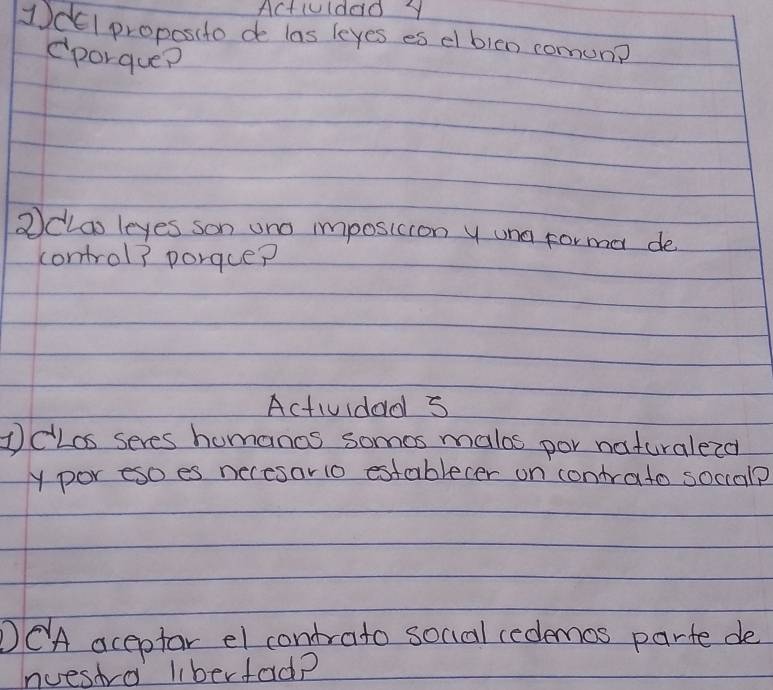 Actividad 4
1) ¿El proposito de las leyes es el bien comun?
¿porque?
2) ¿Las leyes son una imposiccon y una forma de
control? porque?
Actividad 5
1) ¿Los seres humanos somos malos por naturaleza
y por eso es necesario establecer un contrato social?
) ¿A aceptar el contrato social cedemos parte de
nuestra libertad?